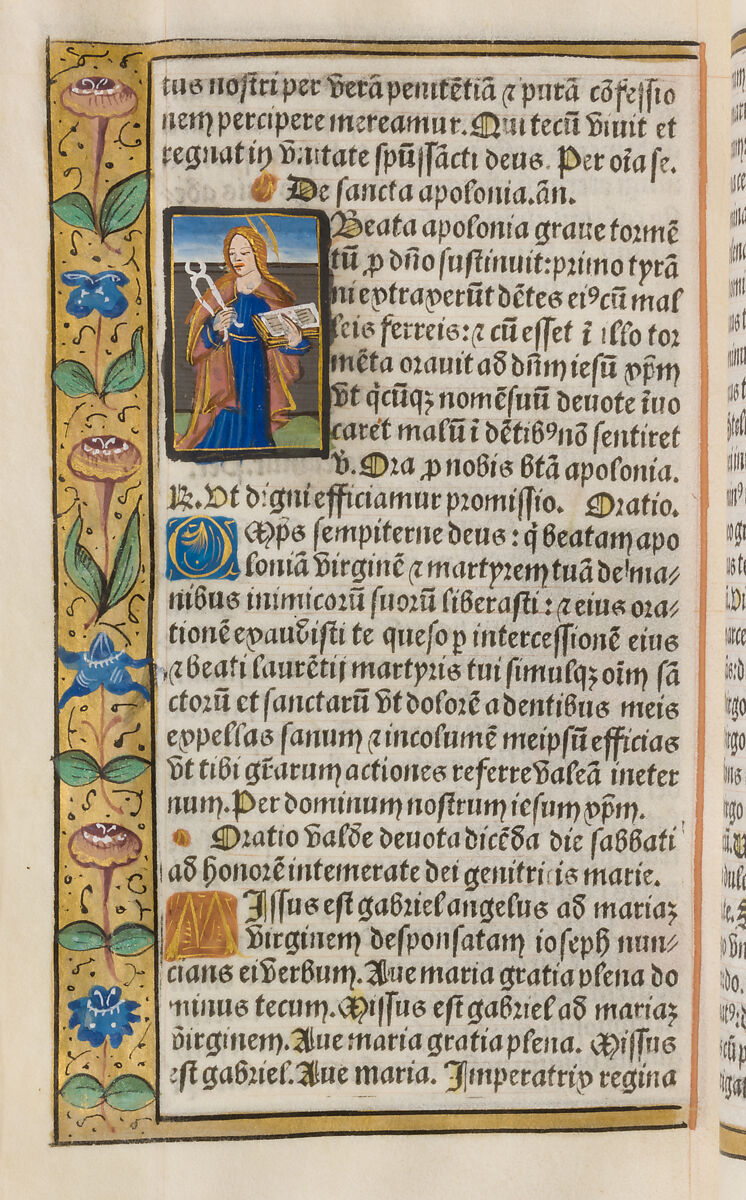 tus nostri per verā penitētiā ⁊ purā cōfessio
nem percipere mereamur. Qui tecū viuit et
regnat in vnitate spūssācti deus. Per oīa se.
De sancta apolonia. añ.
Beata apolonia graue tormē
tū ꝓ dño sustinuit: primo tyrā
ni extraxerūt dētes eiꝰ cū mal
leis ferreis: ⁊ cū esset ī illo tor
mēta orauit ad dñm iesū xp̄m
vt q̇cūqꝫ nomē suū deuote īuo
caret malū ī dētibꝰ nō sentiret
v̄. Ora ꝓ nobis btā apolonia.
℟. Vt digni efficiamur promissio. Oratio.
OMp̄s sempiterne deus: q̇ beatam apo
loniā virginē ⁊ martyrem tuā de ma⸗
nibus inimicorū suorū liberasti: ⁊ eius ora⸗
tionē exaudisti te queso ꝑ intercessionē eius
⁊ beati laurētij martyris tui simulqꝫ oīm sā
ctorū et sanctarū vt dolorē a dentibus meis
expellas sanum ⁊ incolumē meipsū efficias
vt tibi gr̄arum actiones referre valeā in eter
num. Per dominum nostrum iesum xp̄m.
Oratio valde deuota dicēda die sabbati
ad honorē intemerate dei genitricis marie.
MIssus est gabriel angelus ad mariaꝫ
virginem desponsatam ioseph nun⸗
cians ei verbum. Aue maria gratia plena do
minus tecum. Missus est gabriel ad mariaꝫ
virginem. Aue maria gratia plena. Missus
est gabriel. Aue maria. Imperatrix regina